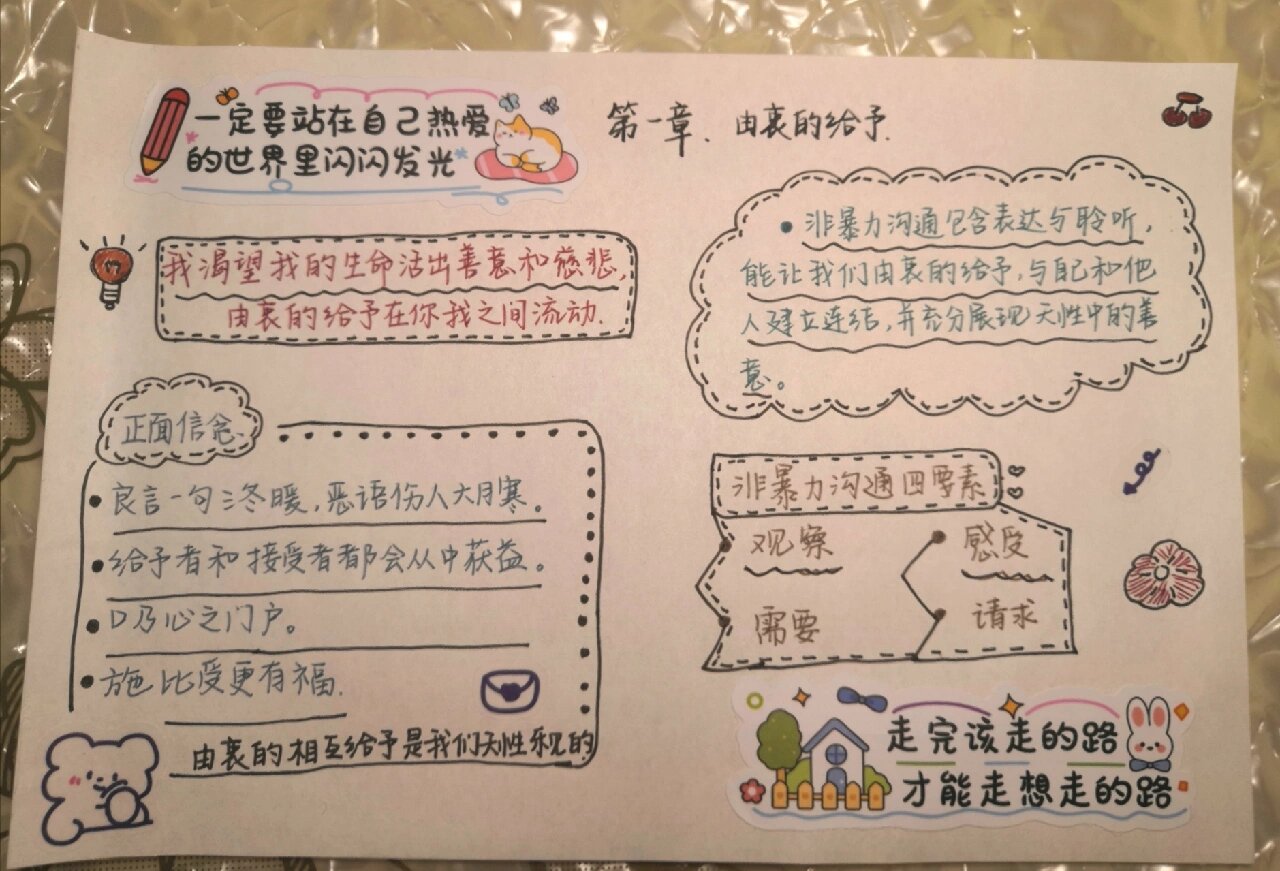 一定要站在自己热爱
的世界里闪闪发光
第一章、由衷的给予.
我渴望我的生命活出善意和慈悲,
由衷的给予在你我之间流动.
·非暴力沟通包含表达与聆听,
能让我们由衷的给予,与自己和他
人建立连结,并充分展现天性中的善
意。
正面信念、
·良言一句三冬暖,恶语伤人六月寒。
·给予者和接受者都会从中获益。
·口乃心之门户。
·施比受更有福.
由衷的相互给予是我们天性乐见的
非暴力沟通四要素
观察
感受
需要
请求
走完该走的路
才能走想走的路